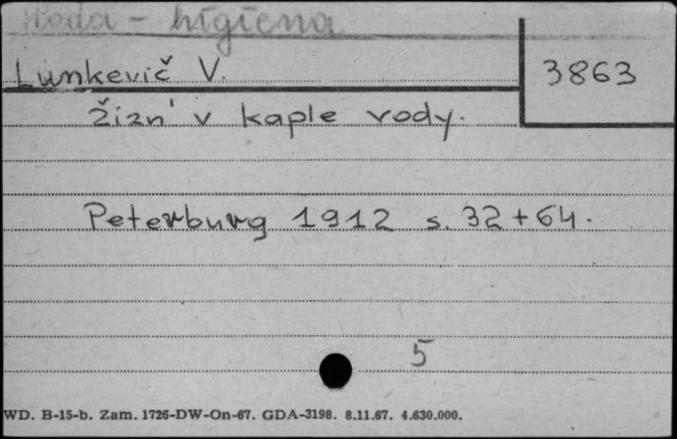 Woda - higiena
Lunkevič V.
3863
Žizn' v kaple vody.
Peterburg 1912 s. 32 + 64.
5
WD. B-15-b. Zam. 1726-DW-On-67. GDA-3198. 8.11.67. 4.630.000.